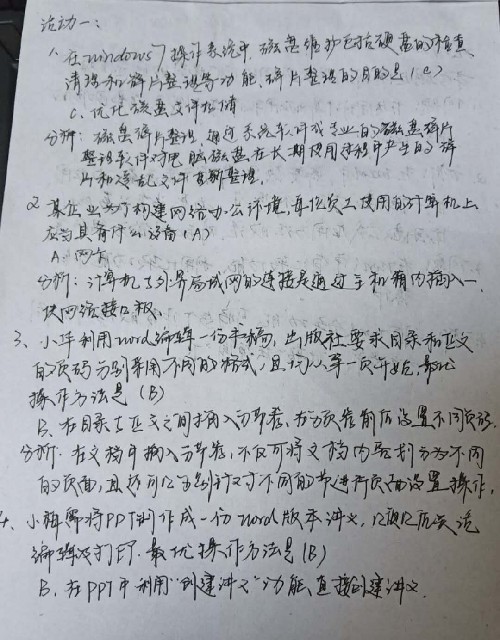 活动一:
1、在windows7操作系统中,磁盘维护包括硬盘的检查
清理和碎片整理等功能,碎片整理的目的是(C)
C、优化磁盘文件存储
分析:磁盘碎片整理,通过系统软件或专业的磁盘碎片
整理软件对电脑磁盘在长期使用过程中产生的碎
片和凌乱文件重新整理。
2、某企业为了构建网络办公环境,每位员工使用的计算机上
应当具备什么设备(A)
A、网卡
分析:计算机与外界局域网的连接是通过主机箱内插入一
块网络接口板。
3、小华利用word编辑一份书稿,出版社要求目录和正文
的页码分别采用不同的格式,且均从第一页开始,最优
操作方法是(B)
B、在目录与正文之间插入分节符,在分页符前后设置不同页码
分析:在文档中插入分节符,不仅可将文档内容划分为不同
的页面,且还可以分别针对不同的节进行页面设置操作,
4、小梅需将PPT制作成一份word版本讲义,以便后续
编辑及打印,最优操作方法是(B)
B、在PPT中利用"创建讲义"功能,直接创建讲义